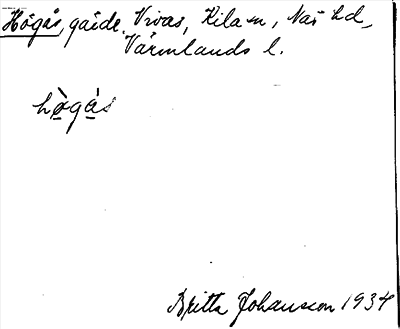 Högås, gärde. Vivas, Kila sn, Näs hd,
Värmlands l.
hògás
Britta Johansson 1934